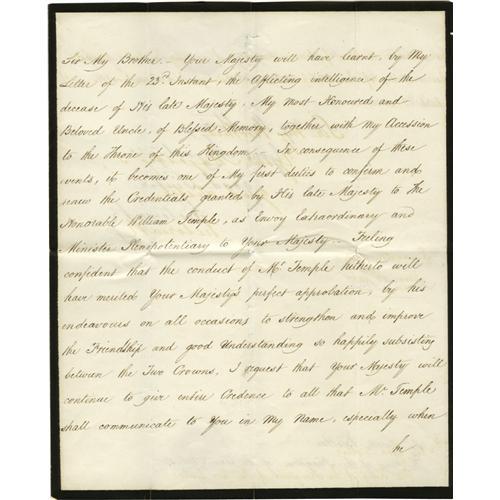 Sir My Brother. - Your Majesty will have learnt, by My
Letter of the 23d. Instant, the Afflicting intelligence of the
decease of His late Majesty, My most Honoured and
Beloved Uncle, of Blessed Memory, together with my Accession
to the Throne of this Kingdom. - In consequence of these
events, it becomes one of My first duties to confirm and
renew the Credentials granted by His late Majesty to The
Honorable William Temple, as Envoy Extraordinary and
Minister Plenipotentiary to Your Majesty. - Feeling
confident that the conduct of Mr. Temple hitherto will
have merited Your Majesty's perfect approbation, by his
endeavours on all occasions to strengthen and improve
the Friendship and good Understanding so happily subsisting
between the Two Crowns, I request that Your Majesty will
continue to give entire Credence to all that Mr. Temple
shall communicate to You in My Name, especially when
he